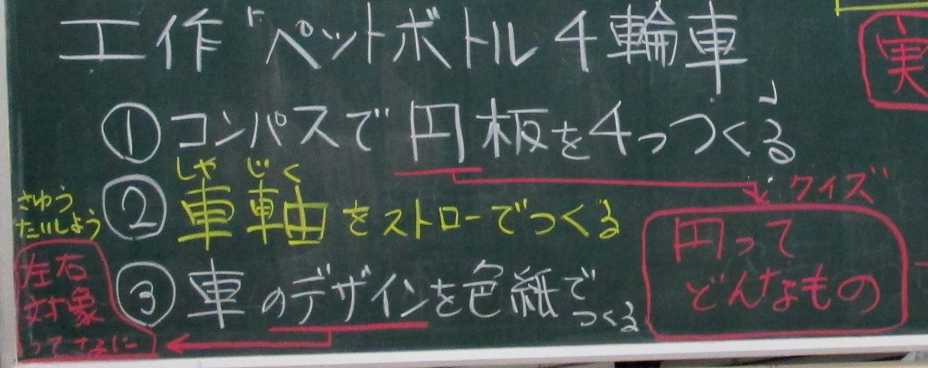 工作 "ペットボトル4輪車"
①コンパスで円板を4つつくる
しゃじく
②車軸をストローでつくる
③車のデザインを色紙でつくる
クイズ
円って
どんなもの
さゆう
たいしょう
左右
対象
ってなに
実